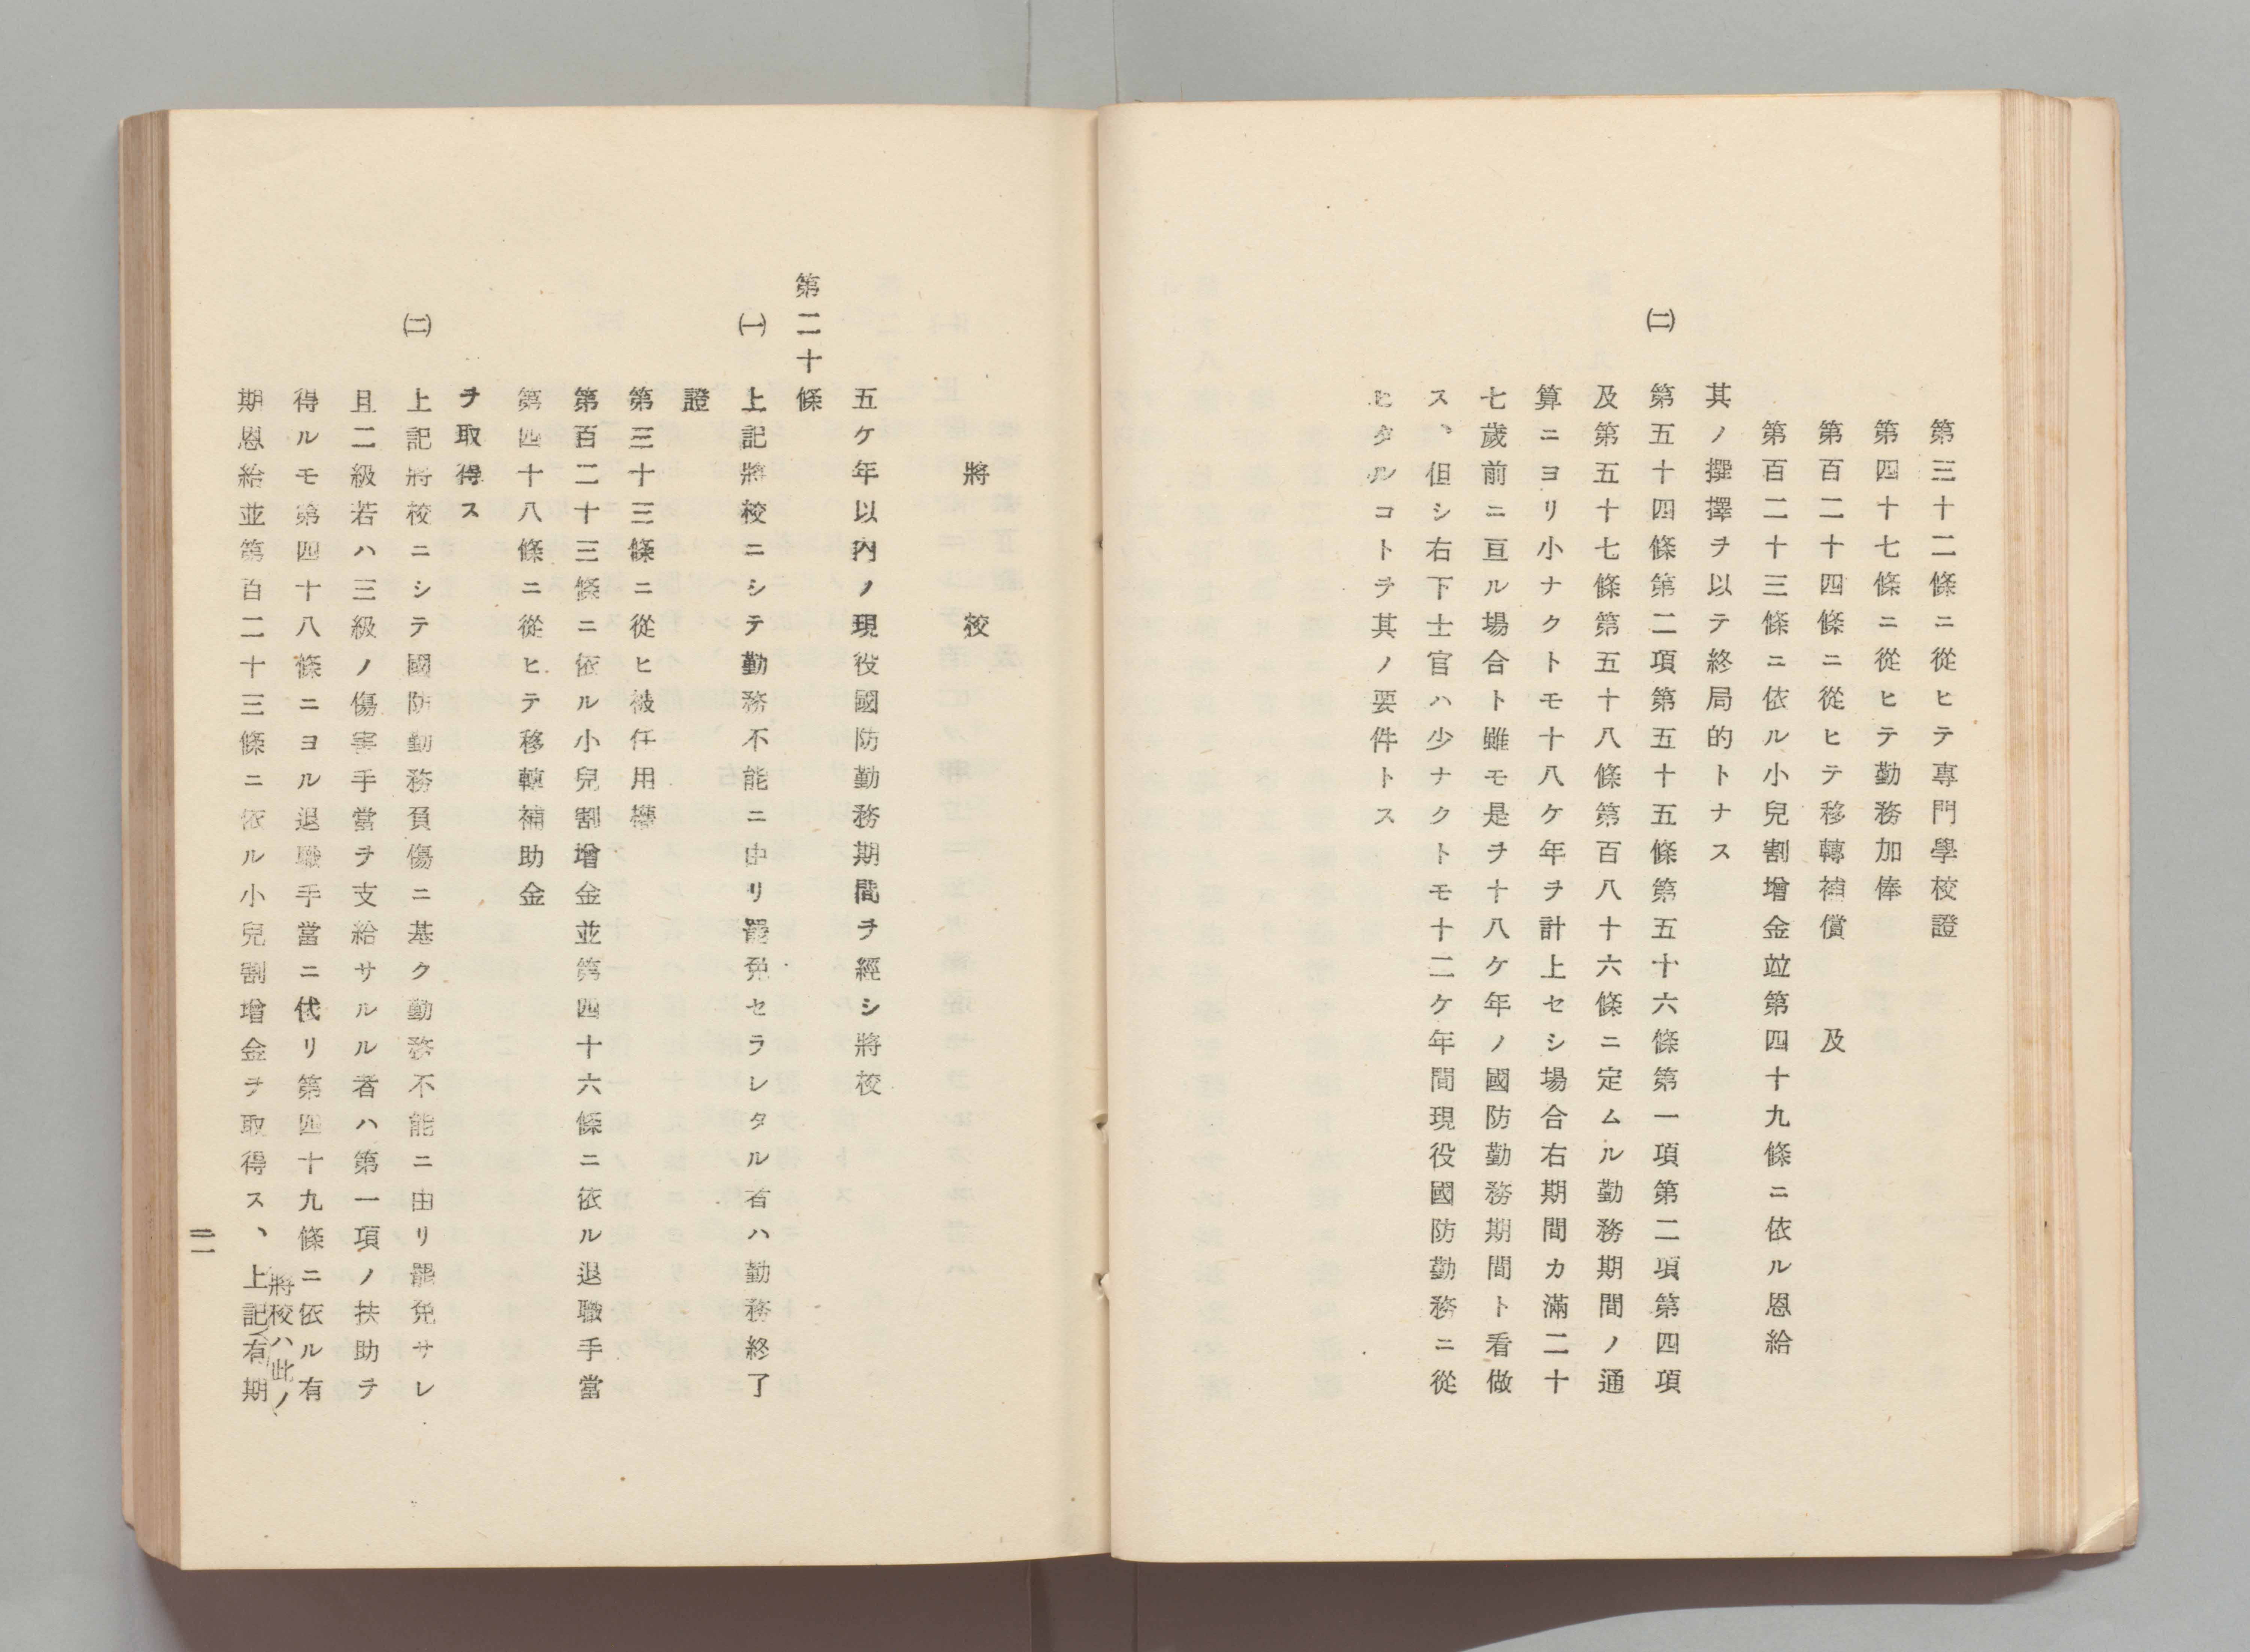 第三十二條ニ從ヒテ專門學校證
第四十七條ニ從ヒテ勤務加俸
第百二十四條ニ從ヒテ移轉補償　及
第百二十三條ニ依ル小兒割增金竝第四十九條ニ依ル恩給
其ノ撰擇ヲ以テ終局的トナス
㈡　第五十四條第二項第五十五條第五十六條第一項第二項第四項
及第五十七條第五十八條第百八十六條ニ定ムル勤務期間ノ通
算ニヨリ小ナクトモ十八ケ年ヲ計上セシ場合右期間カ滿二十
七歲前ニ亘ル場合ト雖モ是ヲ十八ケ年ノ國防勤務期間ト看做
ス、但シ右下士官ハ少ナクトモ十二ケ年間現役國防勤務ニ從
ヒタルコトヲ其ノ要件トス
將　校
五ケ年以內ノ現役國防勤務期間ヲ經シ將校
第二十條
㈠　上記將校ニシテ勤務不能ニ由リ罷免セラレタル者ハ勤務終了
證
第三十三條ニ從ヒ被任用權
第百二十三條ニ依ル小兒割增金並第四十六條ニ依ル退職手當
第四十八條ニ從ヒテ移轉補助金
ヲ取得ス
㈡　上記將校ニシテ國防勤務負傷ニ基ク勤務不能ニ由リ罷免サレ
且二級若ハ三級ノ傷害手當ヲ支給サルル者ハ第一項ノ扶助ヲ
得ルモ第四十八條ニヨル退職手當ニ代リ第四十九條ニ依ル有
期恩給並第百二十三條ニ依ル小兒割增金ヲ取得ス、上記有期
將校ハ此ノ
二一